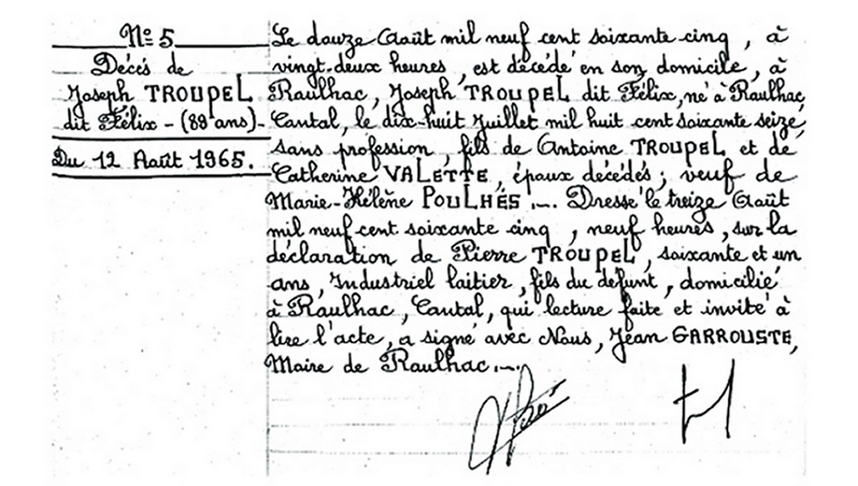 Nº 5
Décés de
Joseph TROUPEL
dit Félix - (89 ans)-
Du 12 Août 1965.
Le douze Août mil neuf cent soixante cinq, à
vingt-deux heures, est décédé en son domicile, à
Raulhac, Joseph TROUPEL dit Félix, né à Raulhac,
Cantal, le dix-huit Juillet mil huit cent soixante seize,
sans profession, fils de Antoine TROUPEL et de
Catherine VALETTE, épaux décédés; veuf de
Marie-Hélène POULHÉS .-. Dressé le treize Août
mil neuf cent soixante cinq, neuf heures, sur la
déclaration de Pierre TROUPEL, soixante et un
ans, Industriel laitier, fils du défunt, domicilié
à Raulhac, Cantal, qui lecture faite et invité à
lire l'acte, a signé avec Nous, Jean GARROUSTE,
Maire de Raulhac .-.